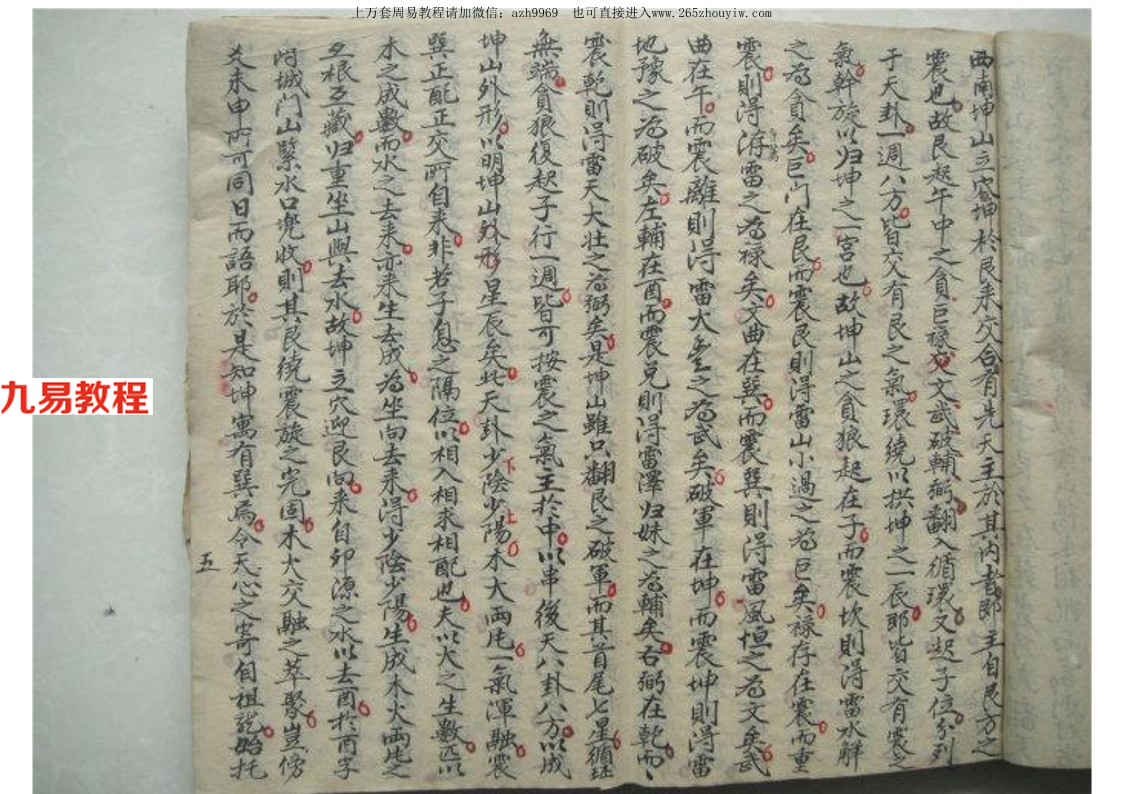 上万套周易教程请加微信：azh9969　也可直接进入www.265zhouyiw.com
九易教程
西南坤山立寔坤於艮来交合有先天主於其内者即主自艮方之
震也故艮起午中之貪巨祿文武破輔弼翻入循環又起子位分列
于天卦一週八方皆六父有艮之氣環繞以拱坤之一辰耶皆交有震之
氣幹旋以归坤之一宫也故坤山之貪狼起在子而震坎則得雷水解
之為貪矣巨门在艮而震艮則得雷山小過之為巨矣祿存在震而重
震則得洊雷之為祿矣文曲在巽而震巽則得雷風恒之為文矣武
曲在午而震離則得雷火豊之為武矣破軍在坤而震坤則得雷
地豫之為破矣左輔在酉而震兑則得雷澤归妹之為輔矣右弼在乾而
震乾則得雷天大壮之為弼矣是坤山雖只翻艮之破軍而其首尾七星循环
無端貪狼復起子行一週皆可按震之氣主於中以串後天八卦八方以成
坤山外形以明坤山外形星辰矣此天卦少陰少陽木火両氐一氣渾融震
下上
巽正配正交所自来非若子息之隔位以相入相求相配也夫以火之生數匹以
木之成數而水之去来亦来生去成為坐向去来得少陰少陽生成木火両氐之
互根互藏归重坐山與去水故坤立穴迎艮向来自卯源之水以去酉於酉字
城门山緊水口兜收則其艮繞震旋之完固木火交融之萃聚豈傍
爻未申所可同日而語耶於是知坤寓有巽焉今天心之寄自祖龍始托
五